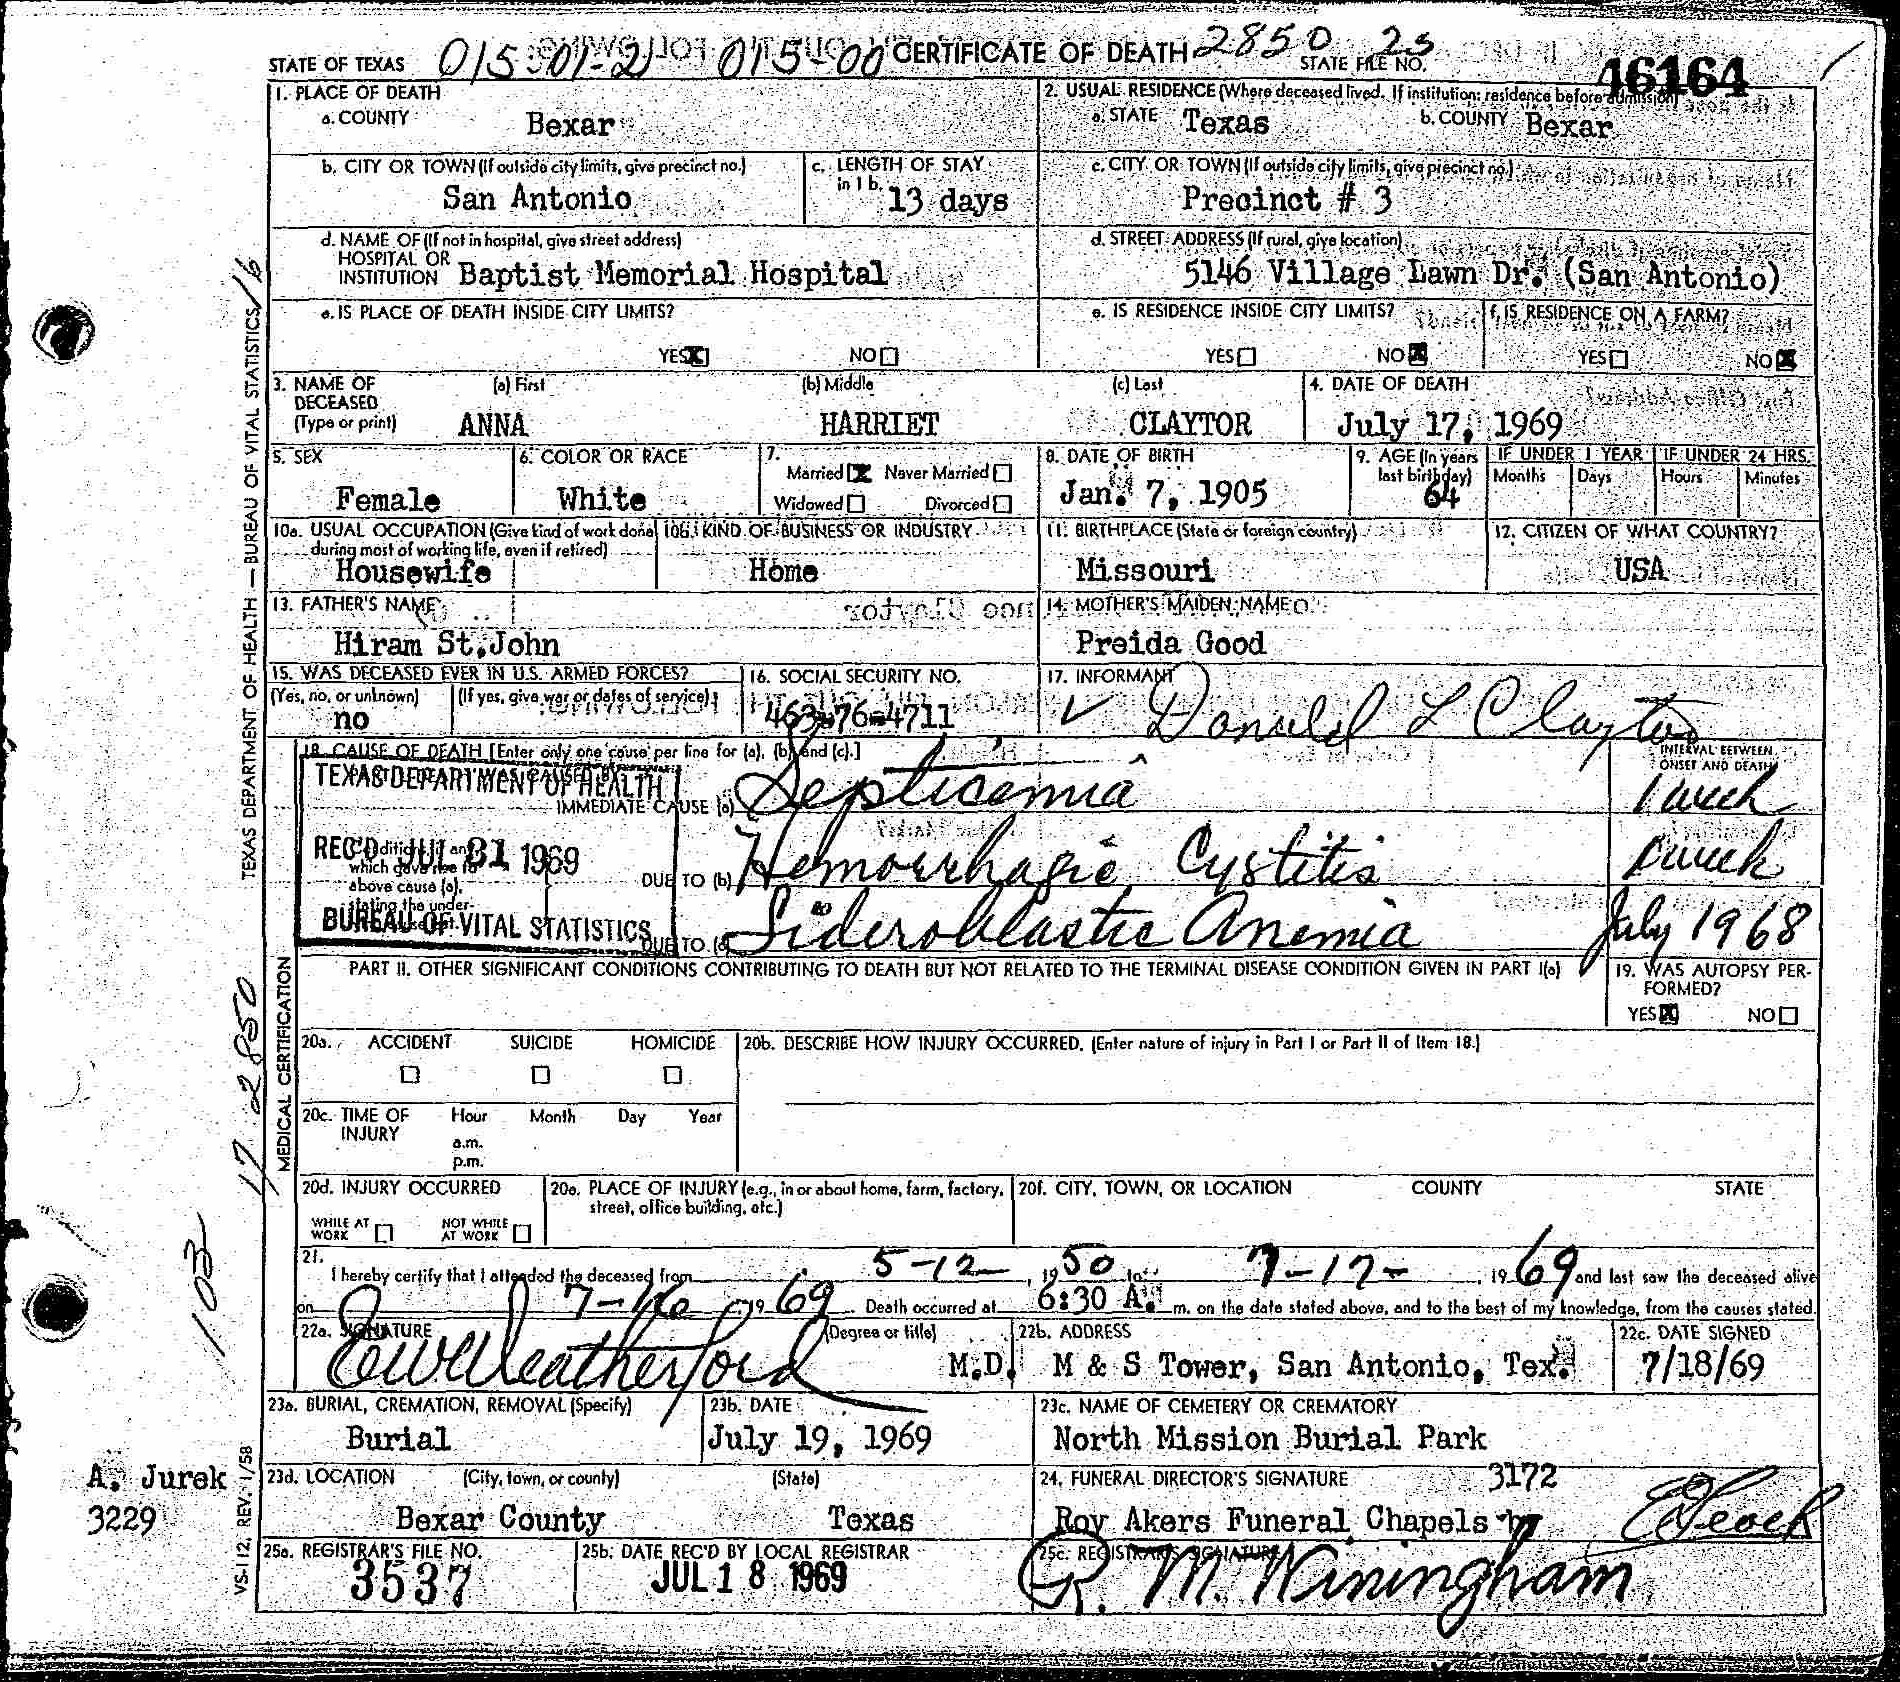 STATE OF TEXAS 015-01-21 015-00 CERTIFICATE OF DEATH 2850 23 STATE FILE NO. 46164
1. PLACE OF DEATH
a. COUNTY Bexar
2. USUAL RESIDENCE (Where deceased lived. If institution: residence before admission)
a. STATE Texas b. COUNTY Bexar
b. CITY OR TOWN (If outside city limits, give precinct no.) San Antonio
c. LENGTH OF STAY in 1 b. 13 days
c. CITY OR TOWN (If outside city limits, give precinct no.) Precinct # 3
d. NAME OF (If not in hospital, give street address)
HOSPITAL OR
INSTITUTION Baptist Memorial Hospital
d. STREET ADDRESS (If rural, give location)
5146 Village Lawn Dr. (San Antonio)
e. IS PLACE OF DEATH INSIDE CITY LIMITS?
YES X NO
e. IS RESIDENCE INSIDE CITY LIMITS?
YES NO X
f. IS RESIDENCE ON A FARM?
YES NO X
3. NAME OF DECEASED (Type or print)
(a) First (b) Middle (c) Last
ANNA HARRIET CLAYTOR
4. DATE OF DEATH
July 17, 1969
5. SEX
Female
6. COLOR OR RACE
White
7.
Married X Never Married
Widowed Divorced
8. DATE OF BIRTH
Jan. 7, 1905
9. AGE (In years last birthday)
64
IF UNDER 1 YEAR
Months Days
IF UNDER 24 HRS.
Hours Minutes
10a. USUAL OCCUPATION (Give kind of work done during most of working life, even if retired)
Housewife
10b. KIND OF BUSINESS OR INDUSTRY
Home
11. BIRTHPLACE (State or foreign country)
Missouri
12. CITIZEN OF WHAT COUNTRY?
USA
13. FATHER'S NAME
Hiram St.John
14. MOTHER'S MAIDEN NAME
Preida Good
15. WAS DECEASED EVER IN U.S. ARMED FORCES?
(Yes, no, or unknown) (If yes, give war or dates of service)
no
16. SOCIAL SECURITY NO.
463-76-4711
17. INFORMANT
Donald L Claytor
18. CAUSE OF DEATH [Enter only one cause per line for (a), (b), and (c).]
INTERVAL BETWEEN ONSET AND DEATH
TEXAS DEPARTMENT OF HEALTH
REC'D JUL 31 1969
BUREAU OF VITAL STATISTICS
IMMEDIATE CAUSE (a) Septicemia 1 week
which gave rise to
above cause (a),
stating the under-
DUE TO (b) Hemorrhagic Cystitis 1 week
DUE TO (c) Sideroblastic Anemia July 1968
PART II. OTHER SIGNIFICANT CONDITIONS CONTRIBUTING TO DEATH BUT NOT RELATED TO THE TERMINAL DISEASE CONDITION GIVEN IN PART I(a)
19. WAS AUTOPSY PERFORMED?
YES X NO
20a. ACCIDENT SUICIDE HOMICIDE
20b. DESCRIBE HOW INJURY OCCURRED. (Enter nature of injury in Part I or Part II of Item 18.)
20c. TIME OF INJURY Hour Month Day Year
a.m.
p.m.
20d. INJURY OCCURRED
WHILE AT WORK NOT WHILE AT WORK
20e. PLACE OF INJURY (e.g., in or about home, farm, factory, street, office building, etc.)
20f. CITY, TOWN, OR LOCATION COUNTY STATE
21.
I hereby certify that I attended the deceased from 5-12-, 1950 to 7-17-, 1969 and last saw the deceased alive
on 7-16 1969. Death occurred at 6:30 A. m. on the date stated above, and to the best of my knowledge, from the causes stated.
22a. SIGNATURE (Degree or title)
EW Weatherford M.D.
22b. ADDRESS
M & S Tower, San Antonio, Tex.
22c. DATE SIGNED
7/18/69
23a. BURIAL, CREMATION, REMOVAL (Specify)
Burial
23b. DATE
July 19, 1969
23c. NAME OF CEMETERY OR CREMATORY
North Mission Burial Park
23d. LOCATION (City, town, or county) (State)
Bexar County Texas
24. FUNERAL DIRECTOR'S SIGNATURE 3172
Roy Akers Funeral Chapels by
25a. REGISTRAR'S FILE NO.
3537
25b. DATE REC'D BY LOCAL REGISTRAR
JUL 18 1969
25c. REGISTRAR'S SIGNATURE
R. M. Winingham
TEXAS DEPARTMENT OF HEALTH — BUREAU OF VITAL STATISTICS 16
MEDICAL CERTIFICATION
17 2850
103
A. Jurek
3229
VS-112, REV. 1/58